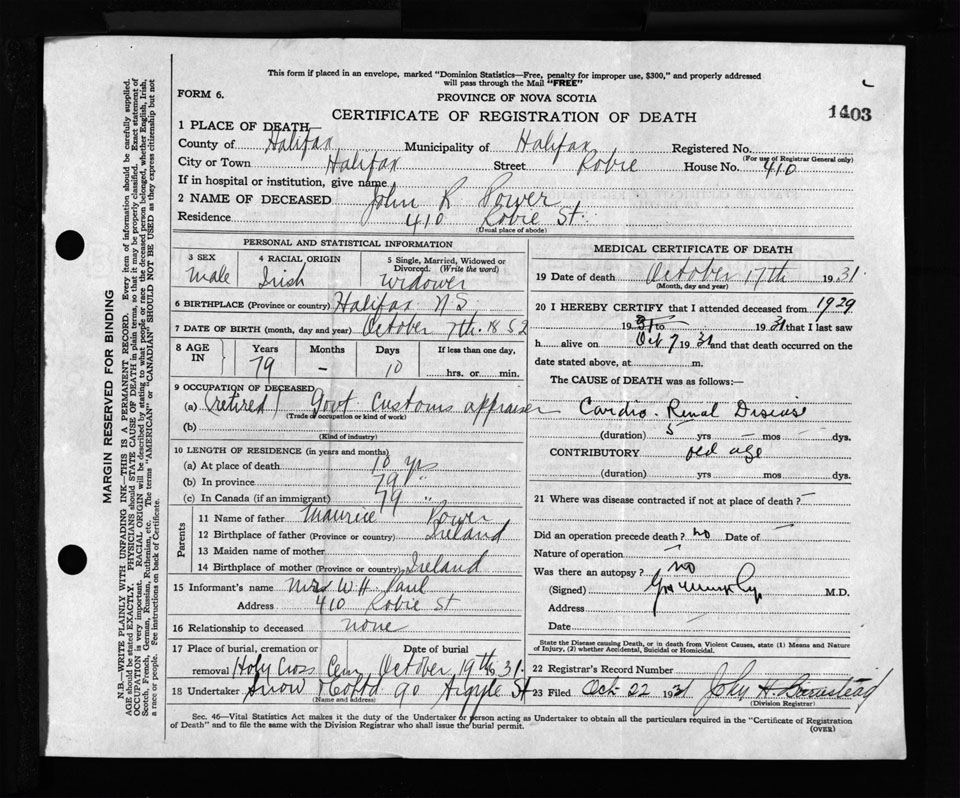 This form if placed in an envelope, marked "Dominion Statistics—Free, penalty for improper use, $300," and properly addressed
will pass through the Mail "FREE"
FORM 6.
PROVINCE OF NOVA SCOTIA
CERTIFICATE OF REGISTRATION OF DEATH
1403
1 PLACE OF DEATH
County of Halifax Municipality of Halifax Registered No.
(For use of Registrar General only)
City or Town Halifax Street Robie House No. 410
If in hospital or institution, give name
2 NAME OF DECEASED John R Power
Residence 410 Robie St.
(Usual place of abode)
PERSONAL AND STATISTICAL INFORMATION
3 SEX 4 RACIAL ORIGIN 5 Single, Married, Widowed or Divorced. (Write the word)
Male Irish Widower
6 BIRTHPLACE (Province or country) Halifax N.S.
7 DATE OF BIRTH (month, day and year) October 7th. 1852
8 AGE IN Years Months Days If less than one day,
79 – 10 hrs. or min.
9 OCCUPATION OF DECEASED
(a) (retired) Govt Customs appraiser
(Trade or occupation or kind of work)
(b)
(Kind of industry)
10 LENGTH OF RESIDENCE (in years and months)
(a) At place of death 10 yrs
(b) In province 79 "
(c) In Canada (if an immigrant) 79 "
Parents
11 Name of father Maurice Power
12 Birthplace of father (Province or country) Ireland
13 Maiden name of mother
14 Birthplace of mother (Province or country) Ireland
15 Informant's name Mrs W. H. Paul
Address 410 Robie St
16 Relationship to deceased none
17 Place of burial, cremation or removal Date of burial
Holy Cross Cem October 19th 31.
18 Undertaker Snow & Co Ltd 90 Argyle St
(Name and address)
MEDICAL CERTIFICATE OF DEATH
19 Date of death October 17th 1931.
(Month, day and year)
20 I HEREBY CERTIFY that I attended deceased from 1929
19 31 to 1931 that I last saw
h alive on Oct 7 1931 and that death occurred on the
date stated above, at m.
The CAUSE of DEATH was as follows:—
Cardio-Renal Disease
(duration) 5 yrs – mos – dys.
CONTRIBUTORY old age
(duration) yrs mos dys.
21 Where was disease contracted if not at place of death? –
Did an operation precede death? no Date of –
Nature of operation –
Was there an autopsy? no
(Signed) M.D.
Address
Date
State the Disease causing Death, or in death from Violent Causes, state (1) Means and Nature
of Injury, (2) whether Accidental, Suicidal or Homicidal.
22 Registrar's Record Number
23 Filed Oct 22 1931 John H. Barnstead
(Division Registrar)
Sec. 46—Vital Statistics Act makes it the duty of the Undertaker or person acting as Undertaker to obtain all the particulars required in the "Certificate of Registration
of Death" and to file the same with the Division Registrar who shall issue the burial permit.
(OVER)
MARGIN RESERVED FOR BINDING
N.B.—WRITE PLAINLY WITH UNFADING INK—THIS IS A PERMANENT RECORD. Every item of information should be carefully supplied.
AGE should be stated EXACTLY. PHYSICIANS should STATE CAUSE OF DEATH in plain terms, so that it may be properly classified. Exact statement of
OCCUPATION is very important. RACIAL ORIGIN will be described by stating to what people or race the deceased person belonged, whether English, Irish,
Scotch, French, German, Russian, Ruthenian, etc. The terms "AMERICAN" or "CANADIAN" SHOULD NOT BE USED as they express citizenship but not
a race or people. See instructions on back of Certificate.